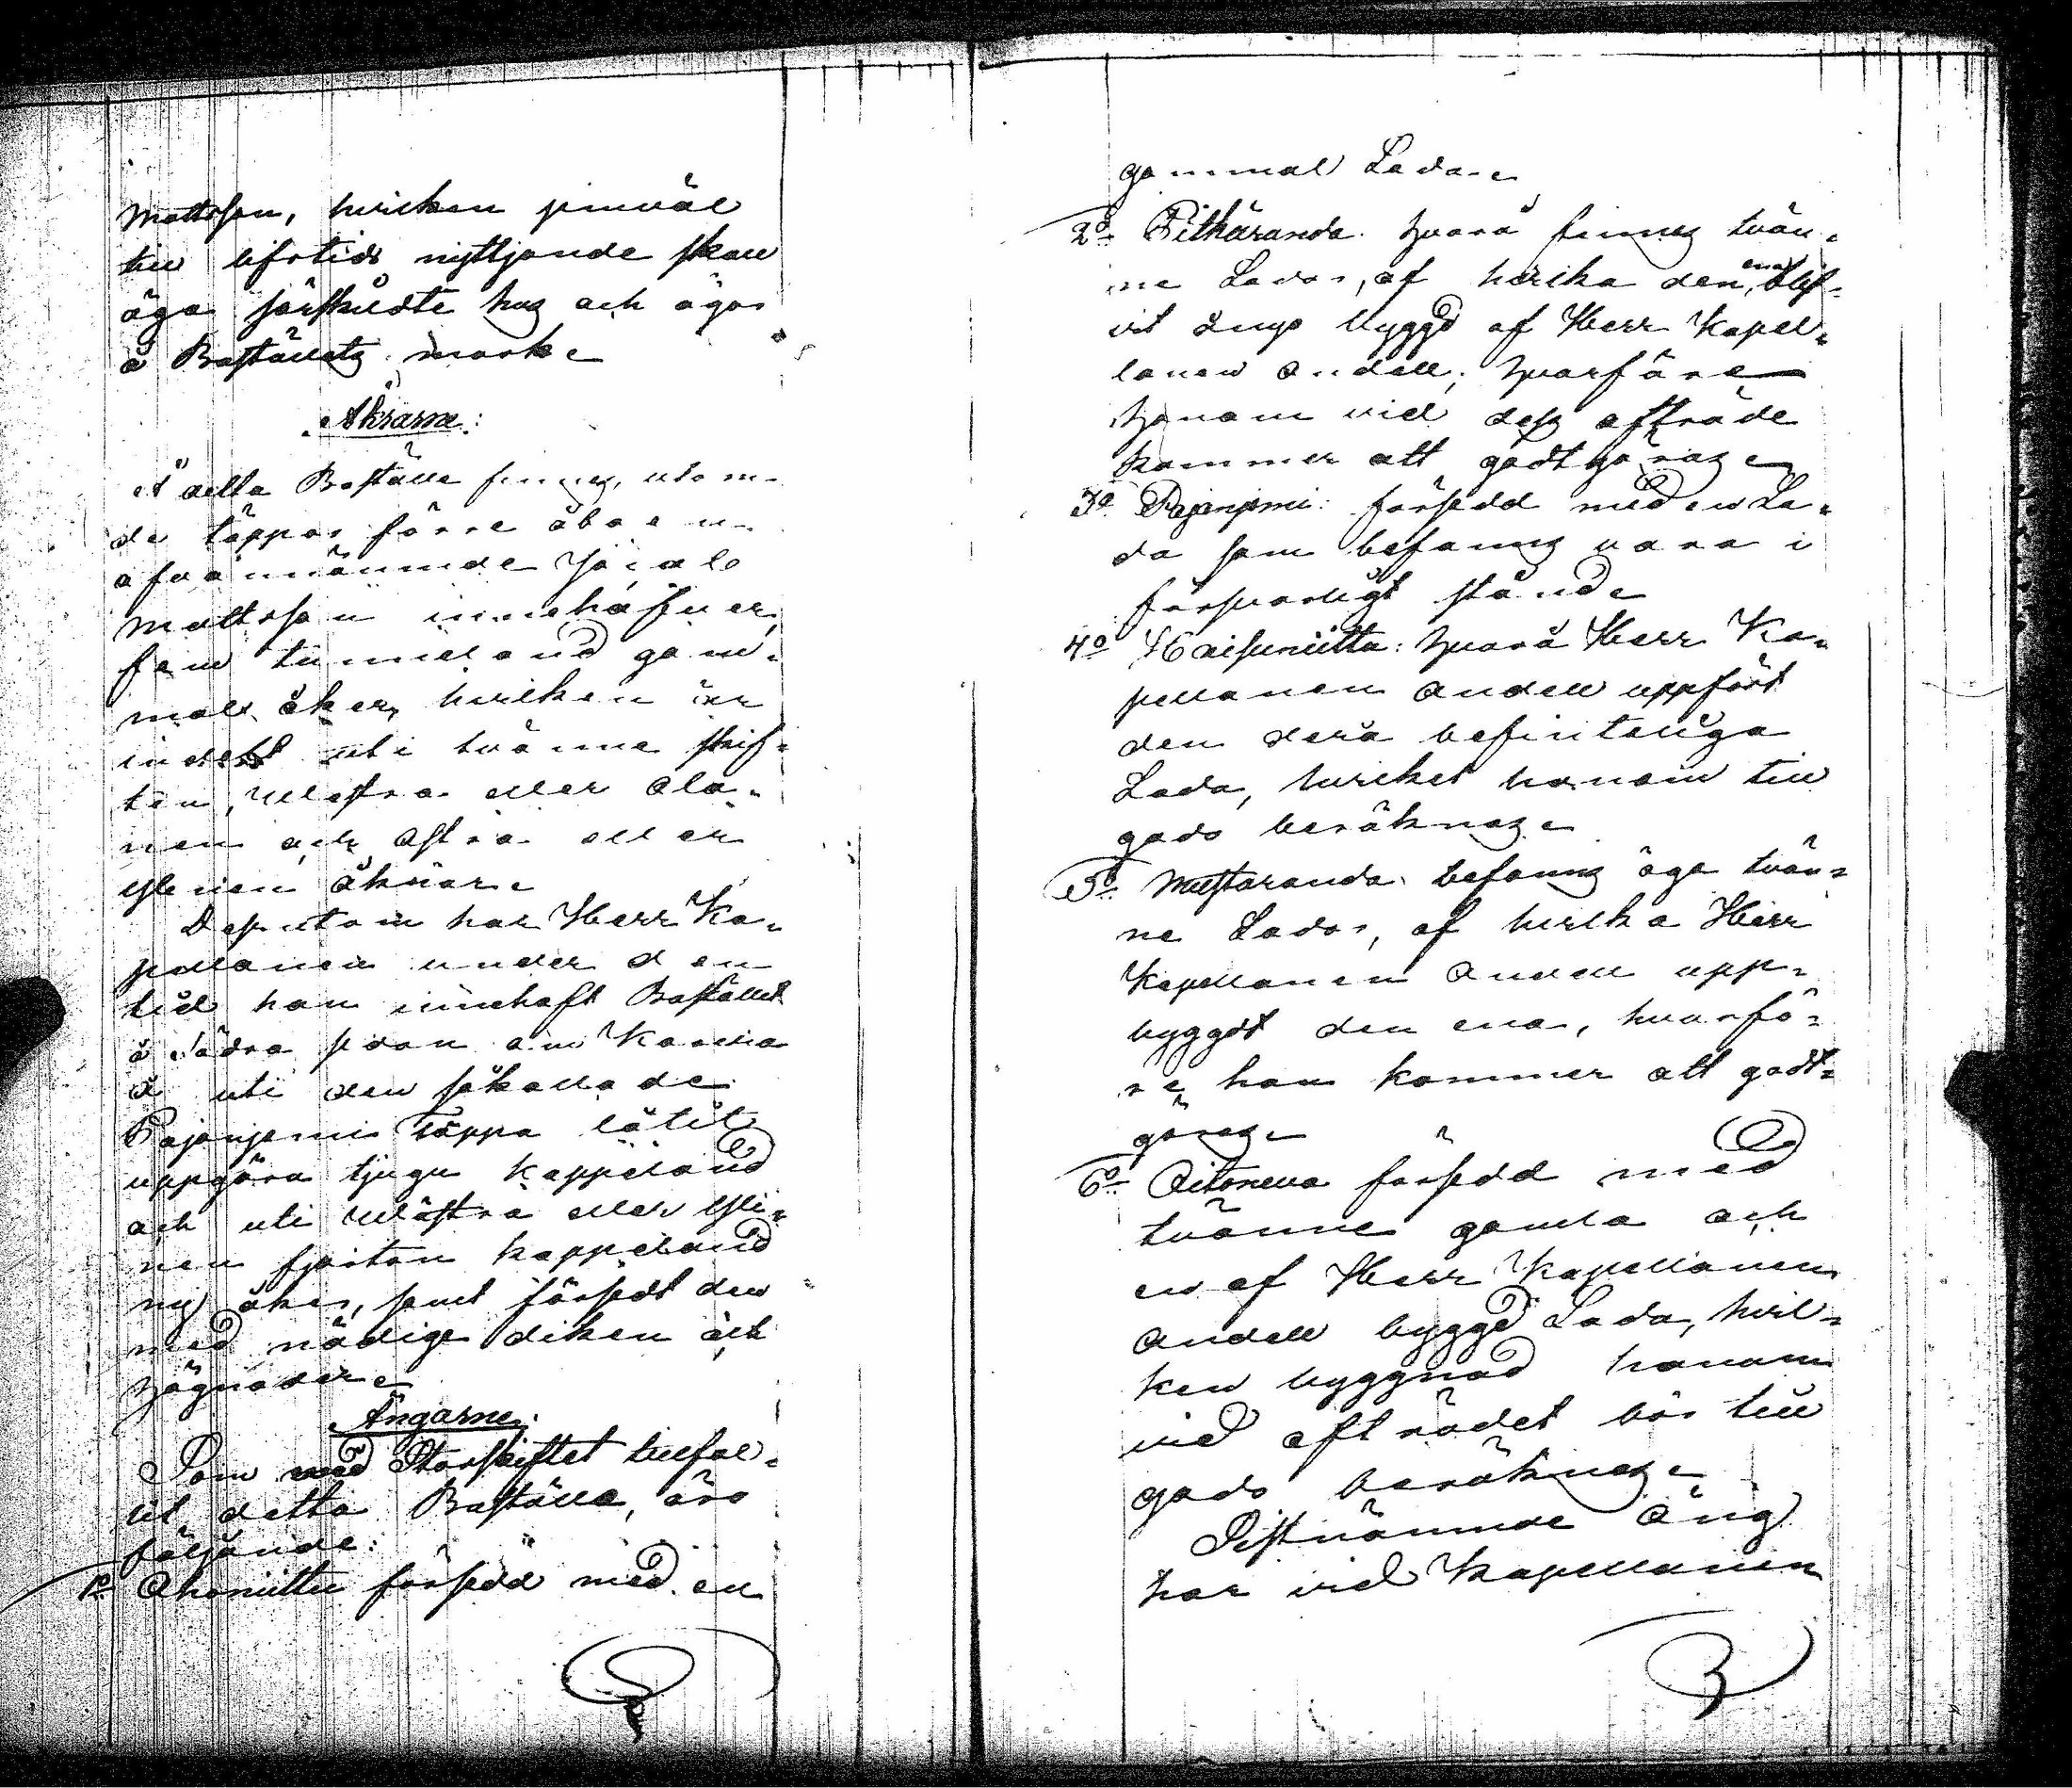 Mattsson, hvilken jemväl
till lifstids nyttjande skall
äga särskildte hus och ägor
å Boställets mark.
Åkrarne:
Å detta Boställe finnes, utom
de täppor förre åboen
ofvannämnde
Mattsson innehafver,
fem tunneland gam-
mal åker, hvilken är
indelt uti tvänne skif-
ten, Westra eller Ala-
nen och Östra eller
Ylenen åkrar.
Dessutom har Herr Ka-
pellanen under den
tid han innehaft Bostället
å södra sidan om
å uti den såkallade
Pajanjemi Täppa låtit
uppgöra tjugu kappeland
och uti Westra eller Yli-
nen fjorton kappeland
ny åker, samt försedt den
med nödige diken och
hägnader.
Ängarne:
Som med Storskiftet tillfal-
lit detta Boställe, äro
följande:
1o Ahoniittu försedd med en
gammal Lada.
2o Pitkäranda. hvarå finnes tvän-
ne Lador, af hvilka den ena blif-
vit ånyo byggd af Herr Kapel-
lanen Andell, hvarföre
honom vid dess afträde
kommer att godtgöras.
3o Pajanjemi: försedd med en La-
da som befanns vara i
försvarligt stånd.
4o Haisuniitta: hvarå Herr Ka-
pellanen Andell uppfört
den derå befinteliga
Lada, hvilket honom till
godo beräknas.
5o Mustaranda. befanns äga tvän-
ne Lador, af hvilka Herr
Kapellanen Andell upp-
byggdt den ena, hvarfö-
re han kommer att godt-
göras.
6o Aitoneva försedd med
tvänne gamla och
en af Herr Kapellanen
Andell byggd Lada, hvil-
ken byggnad honom
vid afträdet bör till
godo beräknas.
Sistnämnde Äng
har vid Kapellanen